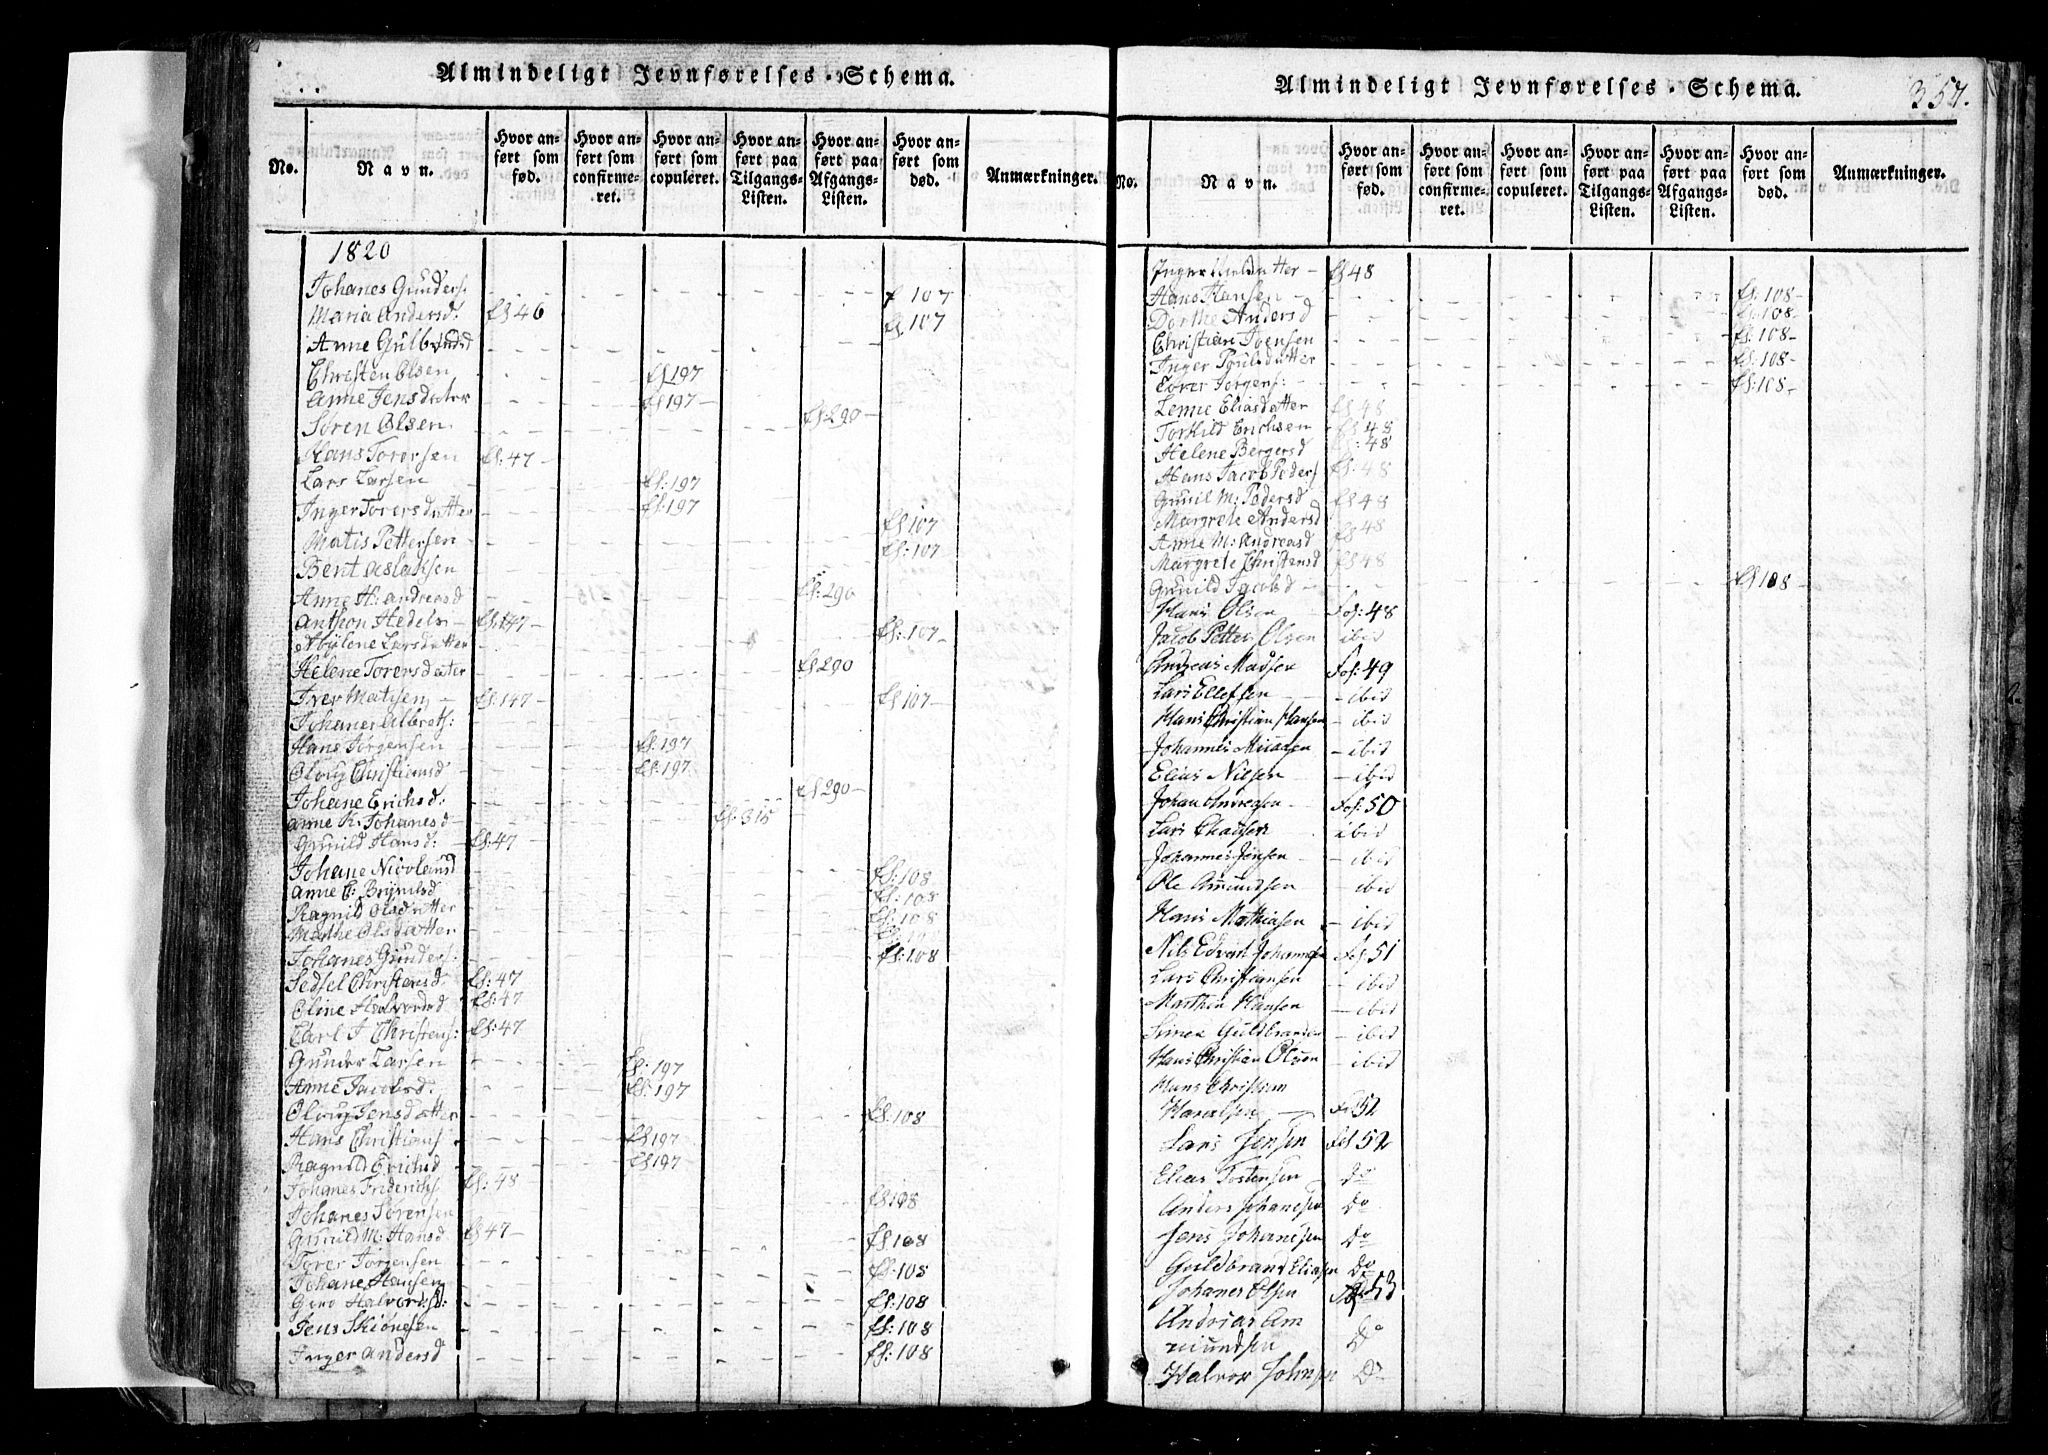 Almindeligt Jevnførelses-Schema.
No. Navn. Hvor anført som fød. Hvor anført som confirmeret. Hvor anført som copuleret. Hvor anført paa Tilgangs-Listen. Hvor anført paa Afgangs-Listen. Hvor anført som død. Anmærkninger.
1820
Johanes Gunders. 107
Maria Andersd. fs 46 fs. 107
Anne Gulbrandsd
Christen Olsen fs 197
Anne Jensdatter fs 197
Søren Olsen fs. 290
Hans Torersen fs. 47
Lars Larsen fs. 197
Inger Torersdatter fs. 197
Matis Pettersen fs 107
Bent Aslaksen fs. 107
Anne H. Andreasd fs. 290
Anthon Hedels fs. 147
Abylene Larsdatter fs. 107
Helene Torersdatter fs 290
Iver Matisen fs. 147 fs 107
Johanes Albrets:
Hans Jørgensen fs. 197
Oloug Christiansd fs. 197
Johane Erichsd: fs 290
Anne K. Johanesd fs. 315
Gunild Hansd: fs. 47
Johane Nicolaisd fs. 108
Anne C: Brynilsd fs. 108
Ragnild Olsdatter fs. 108
Mathe Olsdatter
Johanes Gunders: fs. 108
Sedsel Christensd. fs. 47
Oline Halvorsd fs. 47
Carl J Christens: fs. 47
Gunder Larsen fs. 197
Anne Jacobsd. fs. 197
Oloug Jensdatter fs. 108
Hans Christians. fs 197
Ragnild Erichsd fs 197
Johanes Friderichs fs. 48
Johanes Sørensen fs 108
Gunild M. Hansd fs 47 fs 108
Torer Jørgensen fs. 108
Johane Hansen
Halvorsd: fs. 108
Jens fs. 108
Inger Andersd fs. 108
Almindeligt Jevnførelses-Schema. 357.
No. Navn. Hvor anført som fød. Hvor anført som confirmeret. Hvor anført som copuleret. Hvor anført paa Tilgangs-Listen. Hvor anført paa Afgangs-Listen. Hvor anført som død. Anmærkninger.
Inger Nielsdatter fs 48
Hans Hansen fs. 108
Dorthe Andersd fs. 108
Christian Joensen fs. 108
Inger Poulsdatter fs. 108
Torer Jørgens: fs. 108
Lenne Eliasdatter fs 48
Torkild Erichsen fs 48
Helene Bergersd fs. 48
Hans Jacob Peders fs. 48
Gunil M: Pedersd fs 48
Margrete Andersd fs 48
Anne M: Andreasd
Margrete Christensd fs 48
Gunild Jacobsd fs 108
Hans Olsen Fol: 48
Jacob Petter Olsen ibid
Andreas Madsen Fol: 49
Lars Ellefsen - ibid
Hans Christian Hansen - ibid
Johannes - ibid
Elias Nilsen - ibid
Johan Andreasen Fol: 50
Lars ibid
Johannes Jensen - ibid
Ole Amundsen - ibid
Hans Mathiasen - ibid
Nils Edvart Johannesen Fol: 51
Lars Christiansen - ibid
Marthin Hansen - ibid
Simen Guldbrandsen - ibid
Hans Christian Olsen - ibid
Hans Christian
Haralsen 52
Lars Jensen Fol 52
Elias Tostensen Do
Anders Johanesen Do
Jens Johanesen Do
Guldbrand Eliasen Do
Johanes Olsen Fol 53
Andreas Am
mundsen Do
Halvor Johnsen Do